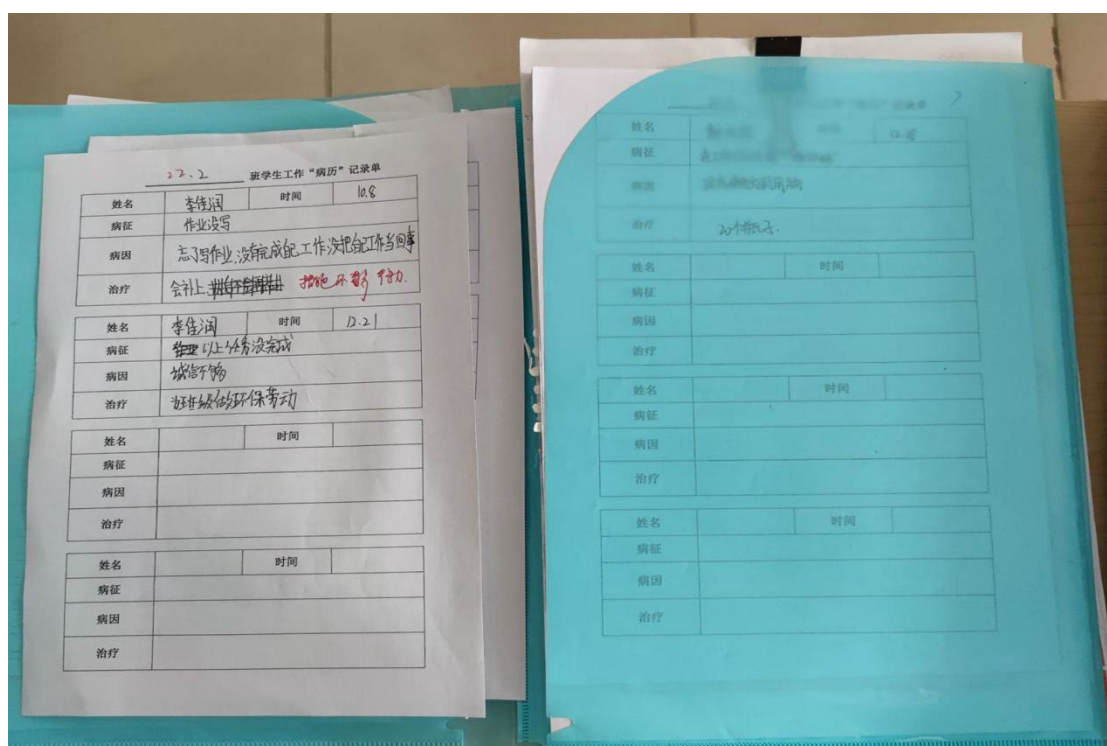 22.2 班学生工作“病历”记录单
姓名 李佳润 时间 10.8
病征 作业没写
病因 忘了写作业,没有完成自己工作没把自己工作当回事
治疗 会补上
姓名 李佳润 时间 12.21
病征 以上任务没完成
病因 诚信不够
治疗 为班级做环保劳动
姓名 时间
病征
病因
治疗
姓名 时间
病征
病因
治疗
记录单
姓名 时间 12.8
病征
病因
治疗 20个瓶子.
姓名 时间
病征
病因
治疗
姓名 时间
病征
病因
治疗
姓名 时间
病征
病因
治疗